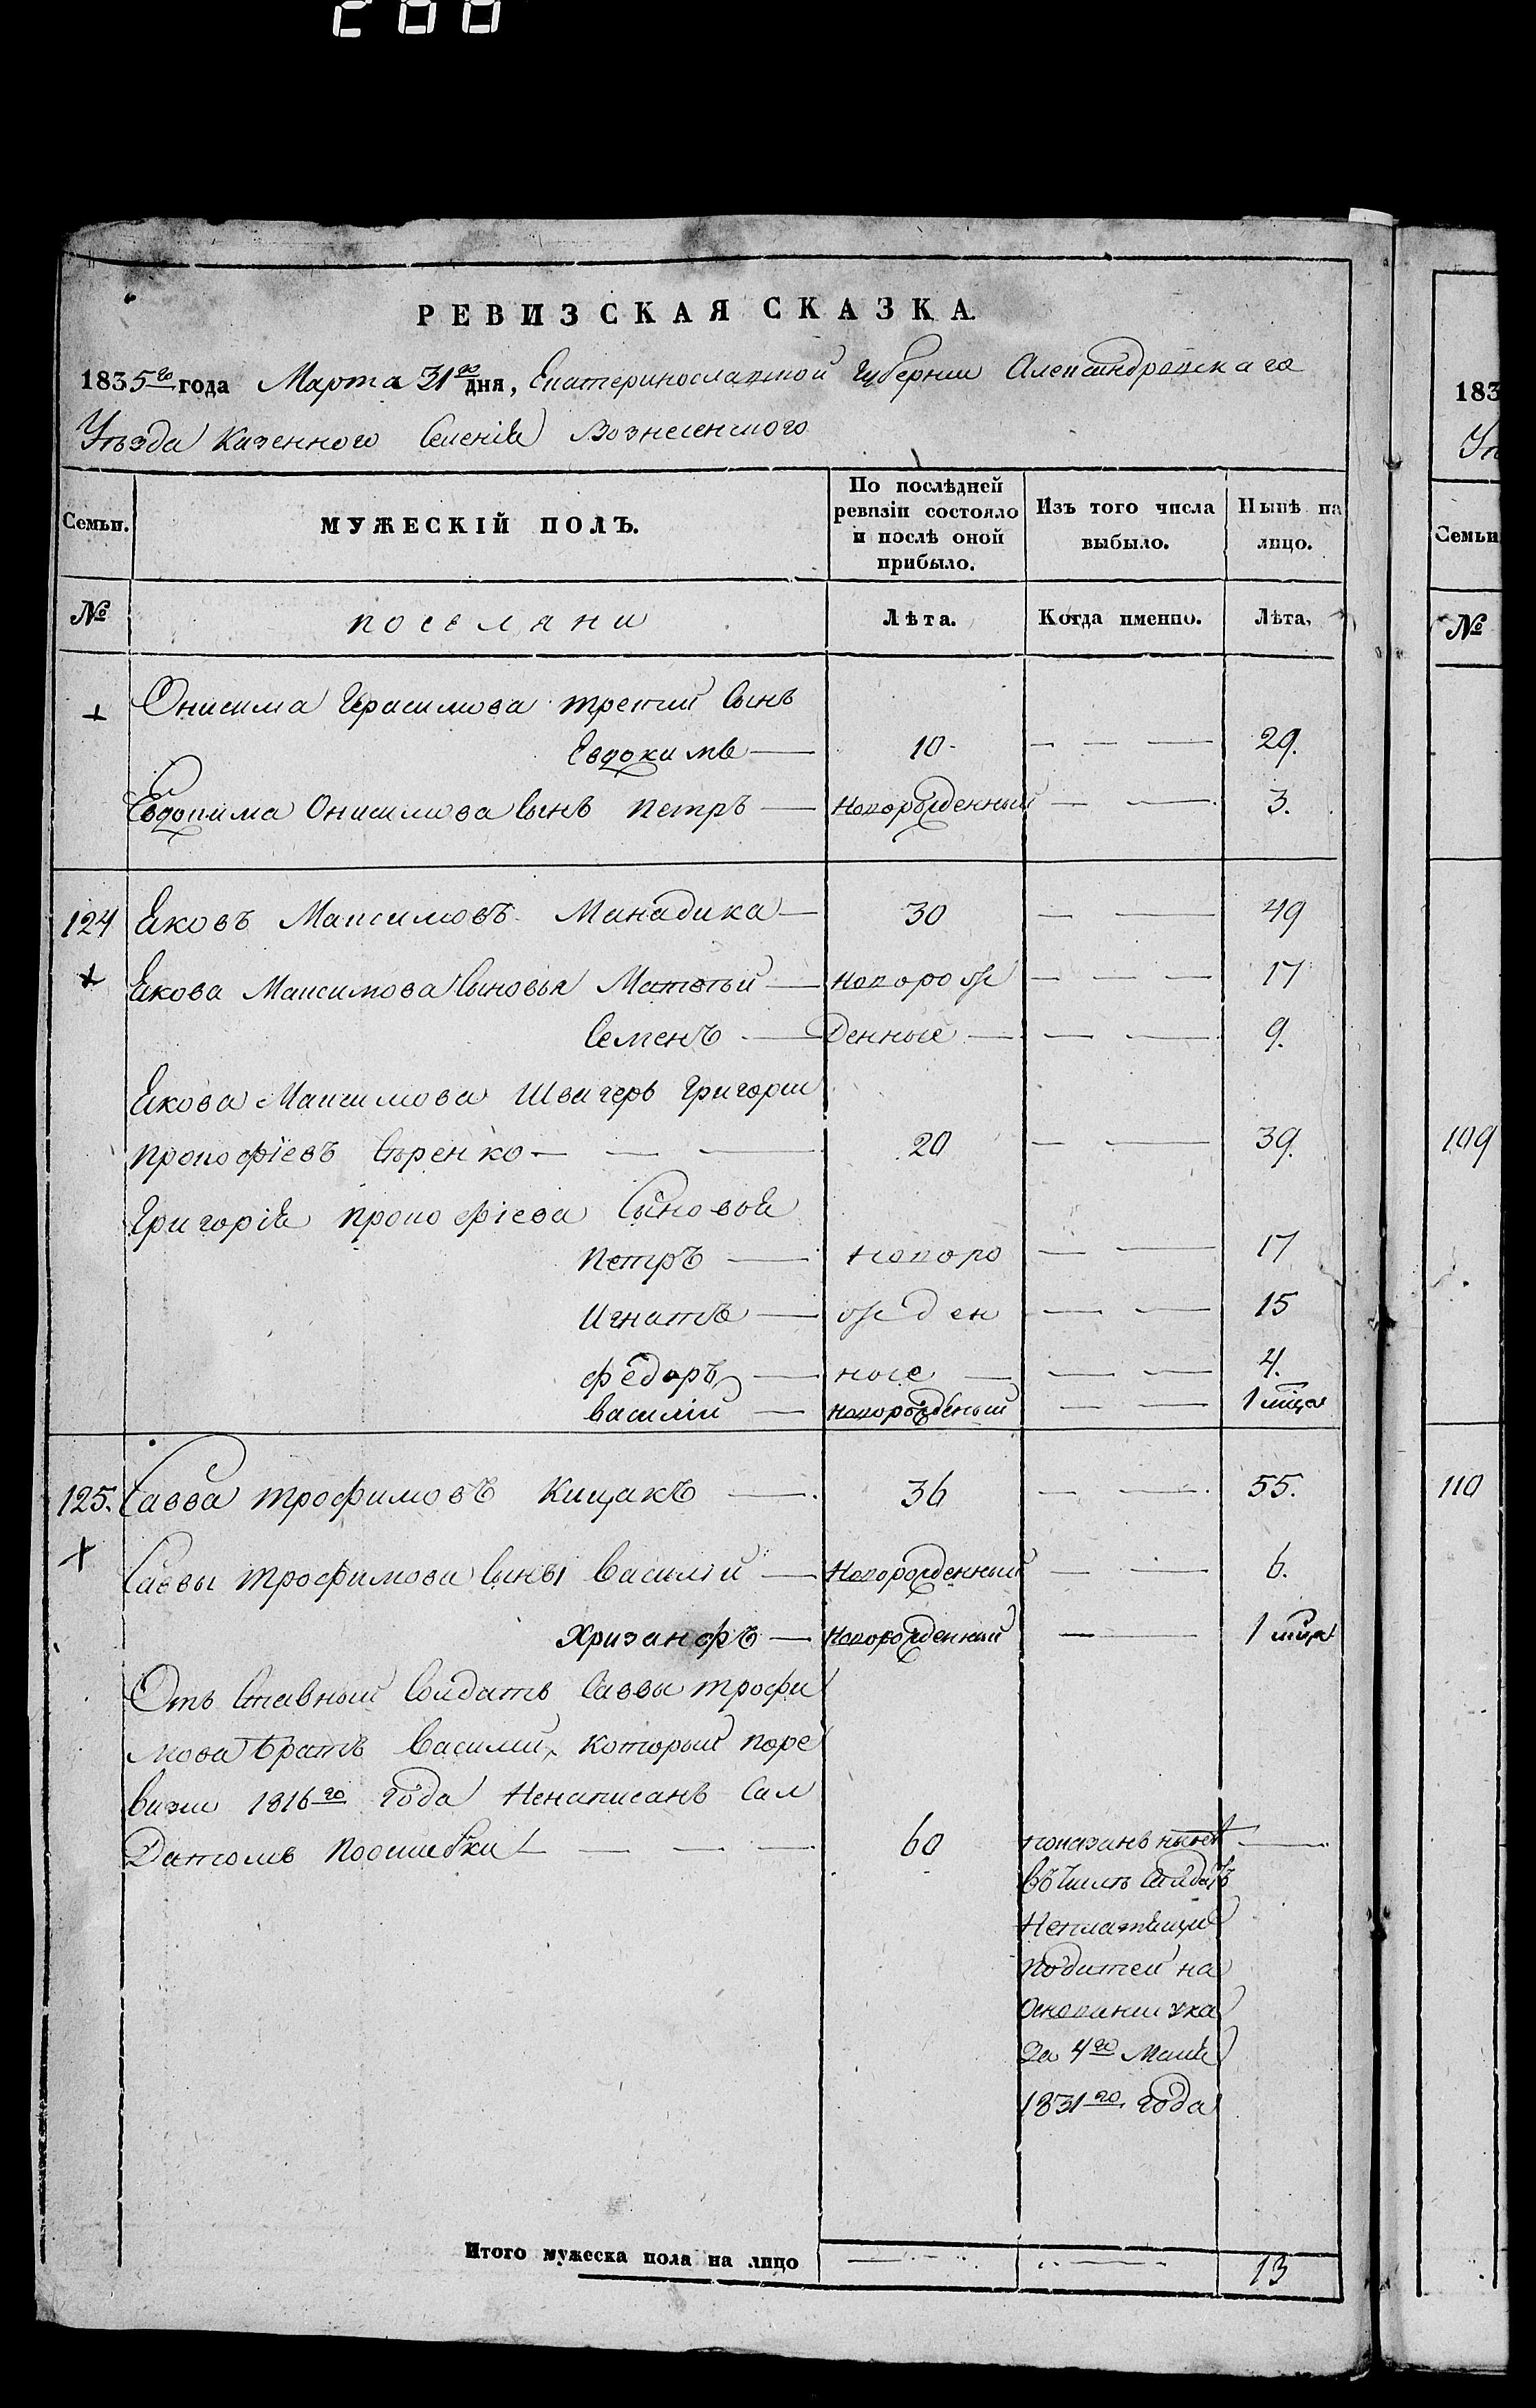 200
РЕВИЗСКАЯ СКАЗКА.
1835го года Марта 31го дня, Екатеринославской Губернии Александровскаго
Уѣзда Казенного Селенія Вознесенского
Семьи.
МУЖЕСКІЙ ПОЛЪ.
По послѣдней
ревизіи состояло
и послѣ оной
прибыло.
Изъ того числа
выбыло.
Нынѣ на
лицо.
№
поселяни
Лѣта.
Когда именно.
Лѣта,
Онисима Герасимова третий сынъ
Евдокимъ — 10 — — — 29.
Евдокима Онисимова сынъ Петръ — новорожденный — — 3.
124 Яковъ Максимовъ Манадика — 30 — — 49
Якова Максимова сыновья Матвѣй — новорож — — — 17
Семенъ — денные — — — — 9.
Якова Максимова швагеръ Григории
прокофіевъ Сѣренко — — — 20 — — 39.
Григорія прокофіева сыновья
Петръ — новоро — — 17
Игнатъ — жден — — 15
федоръ — ные — — — 4.
василій — новорожденый — — 1 мѣца
125. Савва трофимовъ Кищакъ — 36 — — 55.
Саввы трофимова сыны Василій — новорожденный — — 6.
Хризанфъ — новорожденный — — 1 мѣца
Отъ ставный солдатъ Саввы трофи
мова братъ Василий, который поре
визии 1816го года ненаписанъ сал
датомъ поошибки — — — — 60 показанъ нынѣ —
въ числѣ солдатъ
неплатящие
податей на
основании ука
за 4го Мания
1831го года
Итого мужеска пола на лицо — — 13
183
Семьи
№
109
110